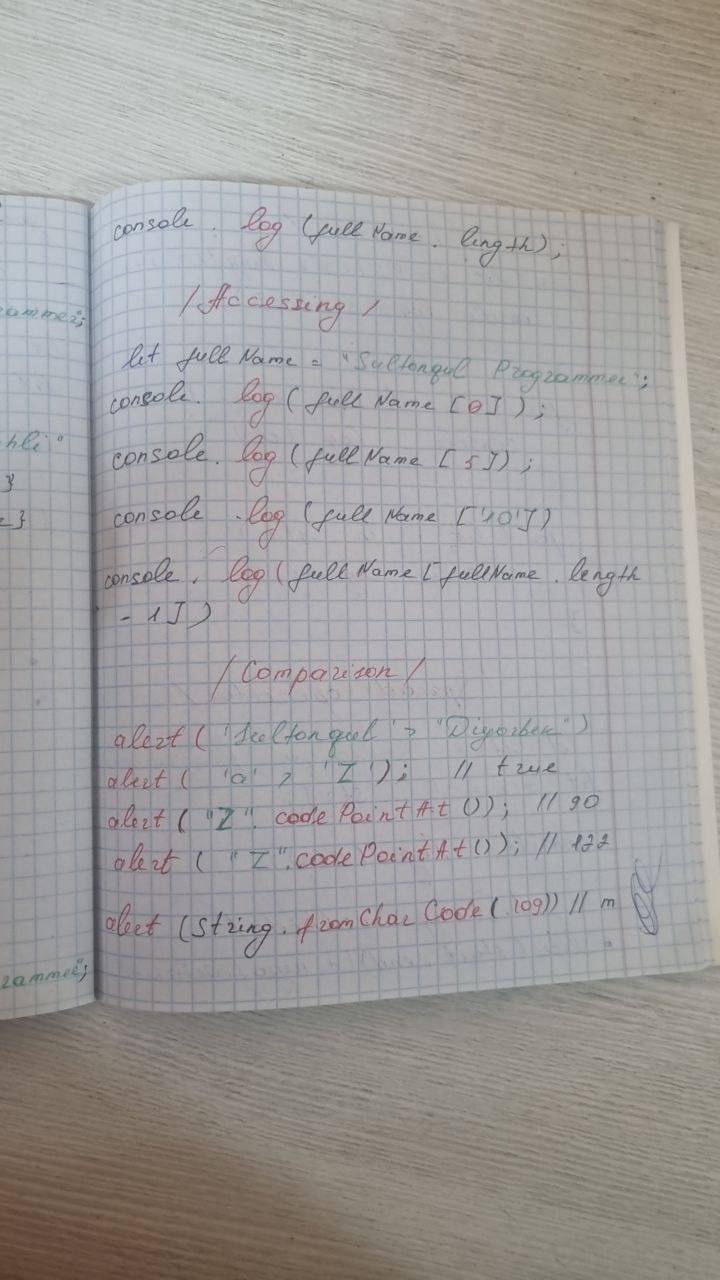 console. log (fullName. length);
/Accessing/
let fullName = "Sultonqul Programmer";
console. log ( fullName [0] );
console. log ( fullName [ 5] );
console .log (fullName ['10'])
console. log (fullName [ fullName. length
- 1])
/Comparison/
alert ( 'Sultonqul' > "Diyorbek")
alert ( 'a' > 'Z'); // true
alert ( "Z". codePointAt ()); // 90
alert ( "Z".codePointAt()); // 122
alert (String. fromCharCode( 109)) // m
ammer";
hli"
}
}
rammer";